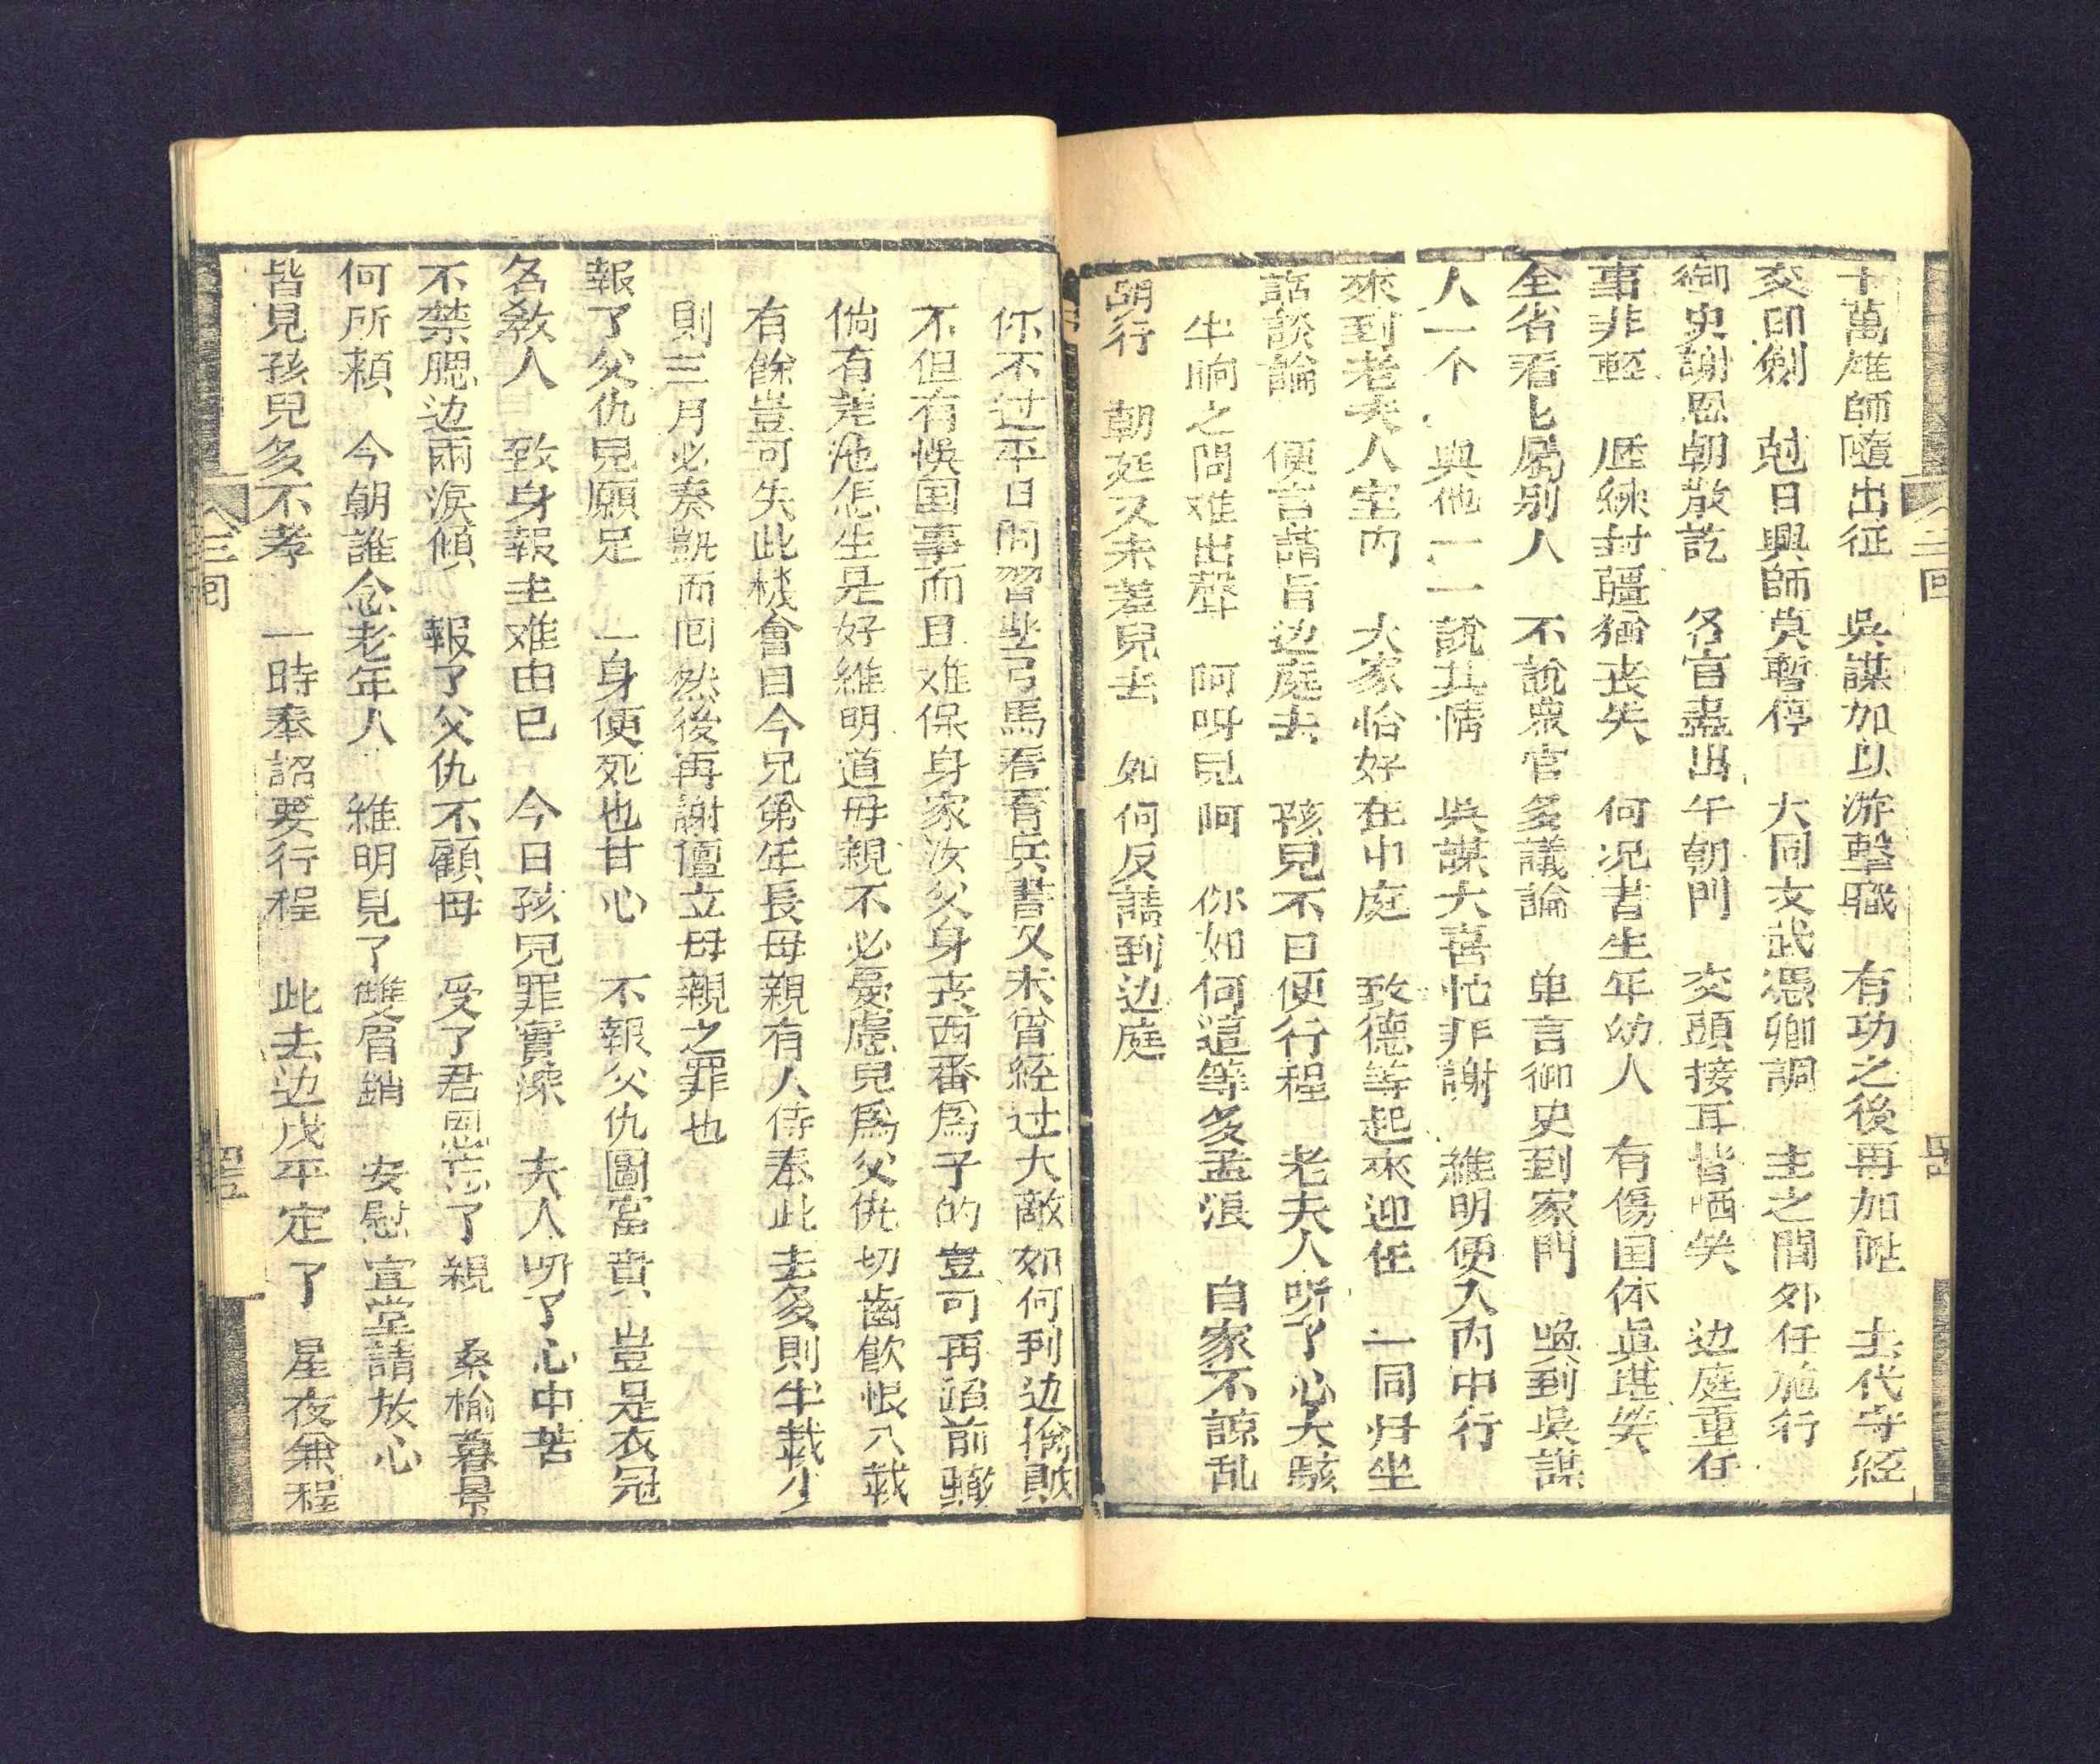 十萬雄師隨出征　吳謀加以游擊職　有功之後再加陞　去代守經
交印劍　尅日興師莫暫停　大同文武憑卿調　主之閫外任施行
御史謝恩朝散訖　各官盡出午朝門　交頭接耳皆哂笑　边庭重任
事非輕　歷練封疆猶丧失　何况書生年幼人　有傷国体眞堪笑
全省看匕屬别人　不說衆官多議論　单言御史到家門　喚到吳謀
人一个　與他一一說其情　吳謀大喜忙非謝　維明便入內中行
來到老夫人室內　大家怡好在中庭　致德等起來迎任　一同归坐
話談論　便言請旨边庭去　孩兒不日便行程　老夫人听了心大駭
半晌之間难出聲　阿呀兒阿　你如何這等多孟浪　自家不諒乱
胡行　朝延又未差兒去　如何反請到边庭
你不过平日間習些弓馬看看兵書又未曾經过大敵如何到边擒賊
不但有悞国事而且难保身家汝父身丧西番爲子的豈可再蹈前轍
倘有差池怎生是好維明道毋親不必憂慮兒爲父仇切齒飲恨八載
有餘豈可失此機會目今兄弟年長母親有人侍奉此去多則半載少
則三月必奏凱而回然後再謝僵立母親之罪也
報了父仇兒願足　一身便死也甘心　不報父仇圖富貴　豈是衣冠
名敎人　致身報主难由已　今日孩兒罪實深　夫人听了心中苦
不禁腮边兩淚傾　報了父仇不顧母　受了君恩忘了親　桑榆暮景
何所賴　今朝誰念老年人　維明見了雙眉銷　安慰宣堂請放心
皆見孩兒多不孝　一時奉詔要行程　此去边戍平定了　星夜兼程
二回
三回